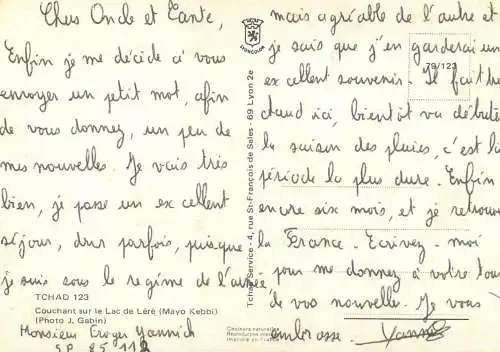 Chers Oncle et Tante,
Enfin je me décide à vous
envoyer un petit mot, afin
de vous donnez, un peu de
mes nouvelles. Je vais très
bien, je passe un excellent
séjour, dur parfois, puisque
je suis sous le régime de l'armée
TCHAD 123
Couchant sur le Lac de Léré (Mayo Kebbi)
(Photo J. Gabin)
Monsieur Yannick
S.P. 85.112
LYONCOLOR
Tchad Service - 4, rue St-François de Sales - 69 Lyon 2e
Couleurs naturelles
Imprimé en France
79/123
mais agréable de l'autre et
je sais que j'en garderai un
excellent souvenir. Il fait très
chaud ici, bientôt va débuter
la saison des pluies, c'est la
période la plus dure. Enfin
encore six mois, et je retrouve
la France. Ecrivez-moi
pour me donnez à votre tour
de vos nouvelles. Je vous
embrasse. Yannick